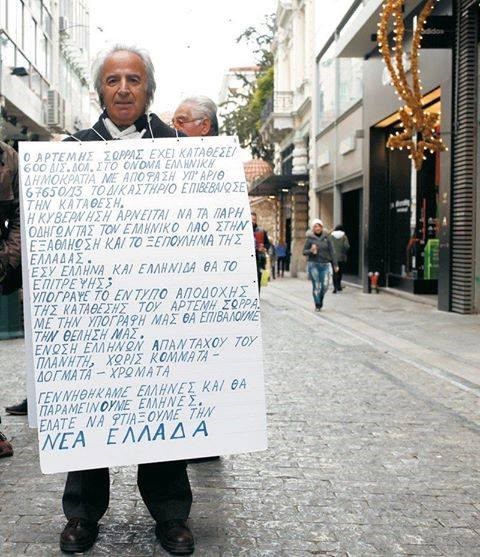 Ο ΑΡΤΕΜΗΣ ΣΩΡΡΑΣ ΕΧΕΙ ΚΑΤΑΘΕΣΕΙ
600 ΔΙΣ. ΔΟΛ. ΣΤΟ ΟΝΟΜΑ ΕΛΛΗΝΙΚΗ
ΔΗΜΟΚΡΑΤΙΑ ΜΕ ΑΠΟΦΑΣΗ ΥΠ' ΑΡΙΘ
ΤΟ ΔΙΚΑΣΤΗΡΙΟ ΕΠΙΒΕΒΑΙΩΣΕ
ΤΗΝ ΚΑΤΑΘΕΣΗ.
Η ΚΥΒΕΡΝΗΣΗ ΑΡΝΕΙΤΑΙ ΝΑ ΤΑ ΠΑΡΗ
ΟΔΗΓΩΝΤΑΣ ΤΟΝ ΕΛΛΗΝΙΚΟ ΛΑΟ ΣΤΗΝ
ΕΞΑΘΛΙΩΣΗ ΚΑΙ ΤΟ ΞΕΠΟΥΛΗΜΑ ΤΗΣ
ΕΛΛΑΔΑΣ.
ΕΣΥ ΕΛΛΗΝΑ ΚΑΙ ΕΛΛΗΝΙΔΑ ΘΑ ΤΟ
ΕΠΙΤΡΕΨΗΣ;
ΥΠΟΓΡΑΨΕ ΤΟ ΕΝΤΥΠΟ ΑΠΟΔΟΧΗΣ
ΤΗΣ ΚΑΤΑΘΕΣΗΣ ΤΟΥ ΑΡΤΕΜΗ ΣΩΡΡΑ.
ΜΕ ΤΗΝ ΥΠΟΓΡΑΦΗ ΜΑΣ ΘΑ ΕΠΙΒΑΛΟΥΜΕ
ΤΗΝ ΘΕΛΗΣΗ ΜΑΣ.
ΕΝΩΣΗ ΕΛΛΗΝΩΝ ΑΠΑΝΤΑΧΟΥ ΤΟΥ
ΠΛΑΝΗΤΗ, ΧΩΡΙΣ ΚΟΜΜΑΤΑ -
ΔΟΓΜΑΤΑ - ΧΡΩΜΑΤΑ
ΓΕΝΝΗΘΗΚΑΜΕ ΕΛΛΗΝΕΣ ΚΑΙ ΘΑ
ΠΑΡΑΜΕΙΝΟΥΜΕ ΕΛΛΗΝΕΣ.
ΕΛΑΤΕ ΝΑ ΦΤΙΑΞΟΥΜΕ ΤΗΝ
ΝΕΑ ΕΛΛΑΔΑ
adidas